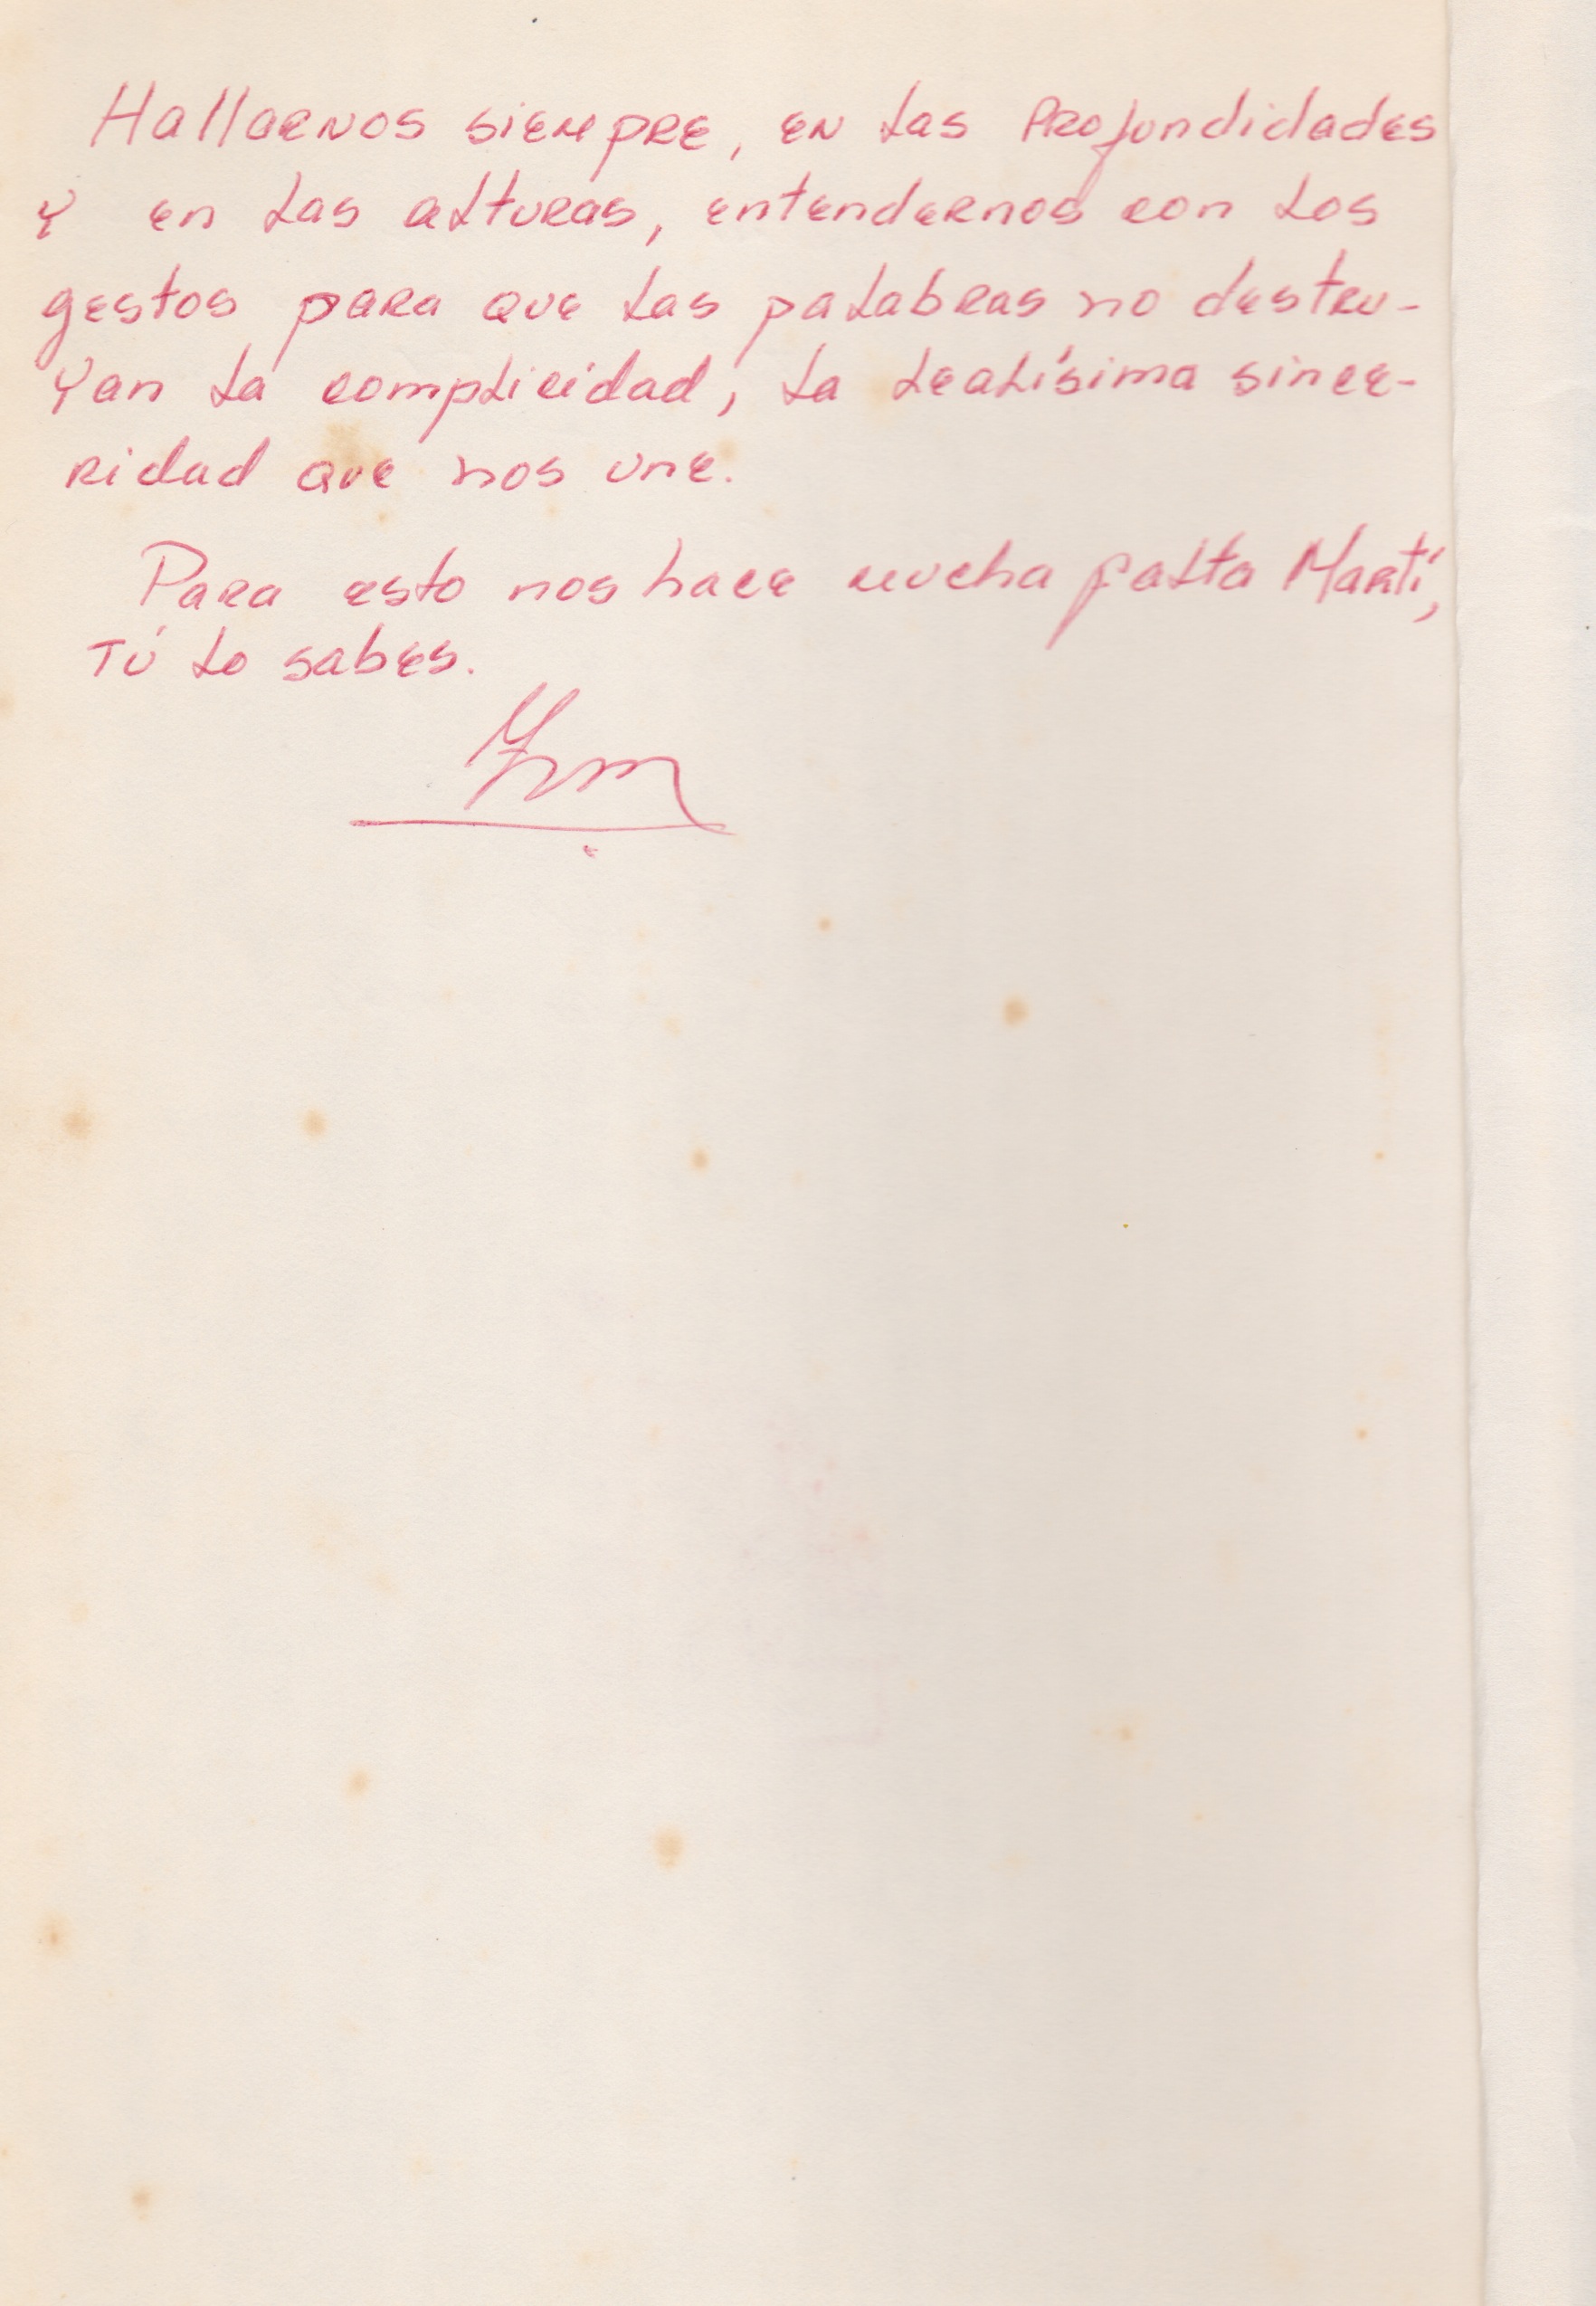 Hallarnos siempre, en las profundidades
y en las alturas, entendernos con los
gestos para que las palabras no destru-
yan la complicidad, la lealísima since-
ridad que nos une.
Para esto nos hace mucha falta Martí,
tú lo sabes.